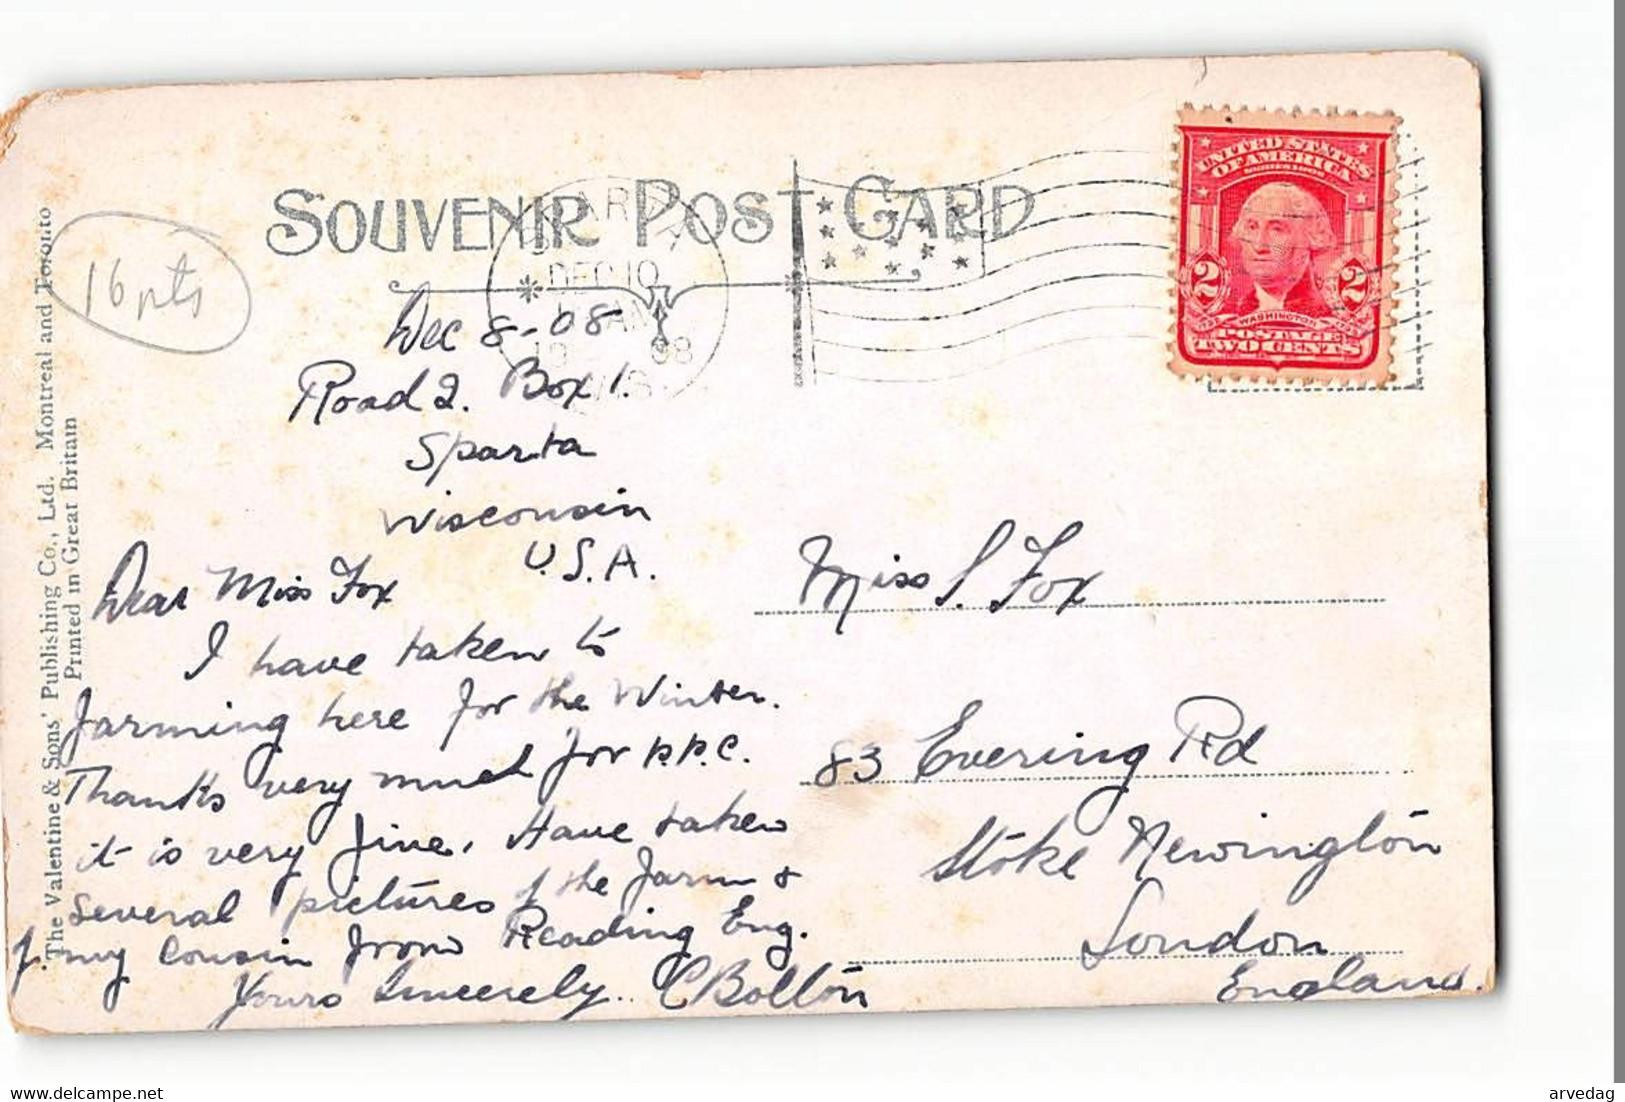 SOUVENIR POST CARD
16 pts
SPARTA
DEC 10
AM
1908
WIS.
UNITED STATES
OF AMERICA
SERIES 1902
2 2
WASHINGTON
POSTAGE
TWO CENTS
Dec 8-08
Road 2. Box 1.
Sparta
Wisconsin
U.S.A.
Dear Miss Fox
I have taken to
farming here for the Winter.
Thanks very much for p.p.c.
it is very fine. Have taken
several pictures of the farm &
of my cousin from Reading Eng.
Yours Sincerely. C Bolton
Miss S. Fox
83 Evering Rd
Stoke Newington
London
England.
The Valentine & Sons' Publishing Co., Ltd. Montreal and Toronto
Printed in Great Britain
www.delcampe.net
arvedag